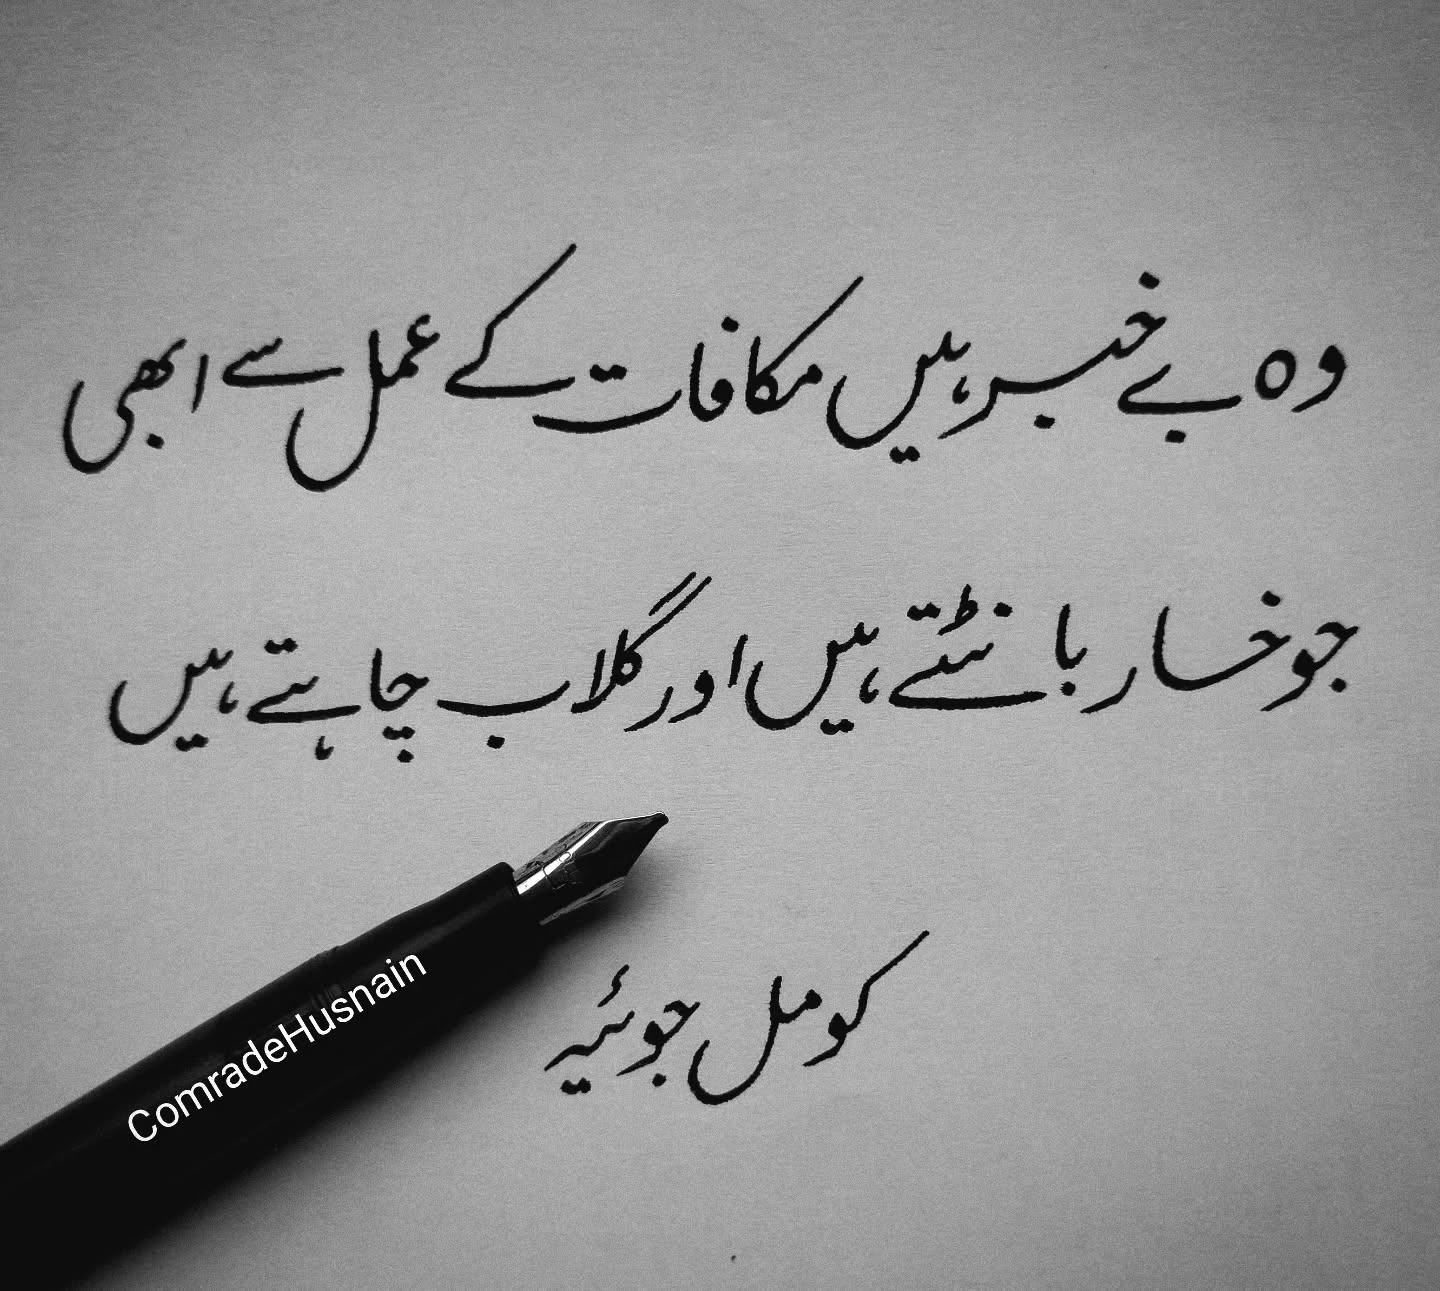 وہ بے خبر ہیں مکافات کے عمل سے ابھی
جو خار بانٹتے ہیں اور گلاب چاہتے ہیں
کومل جوئیہ
ComradeHusnain